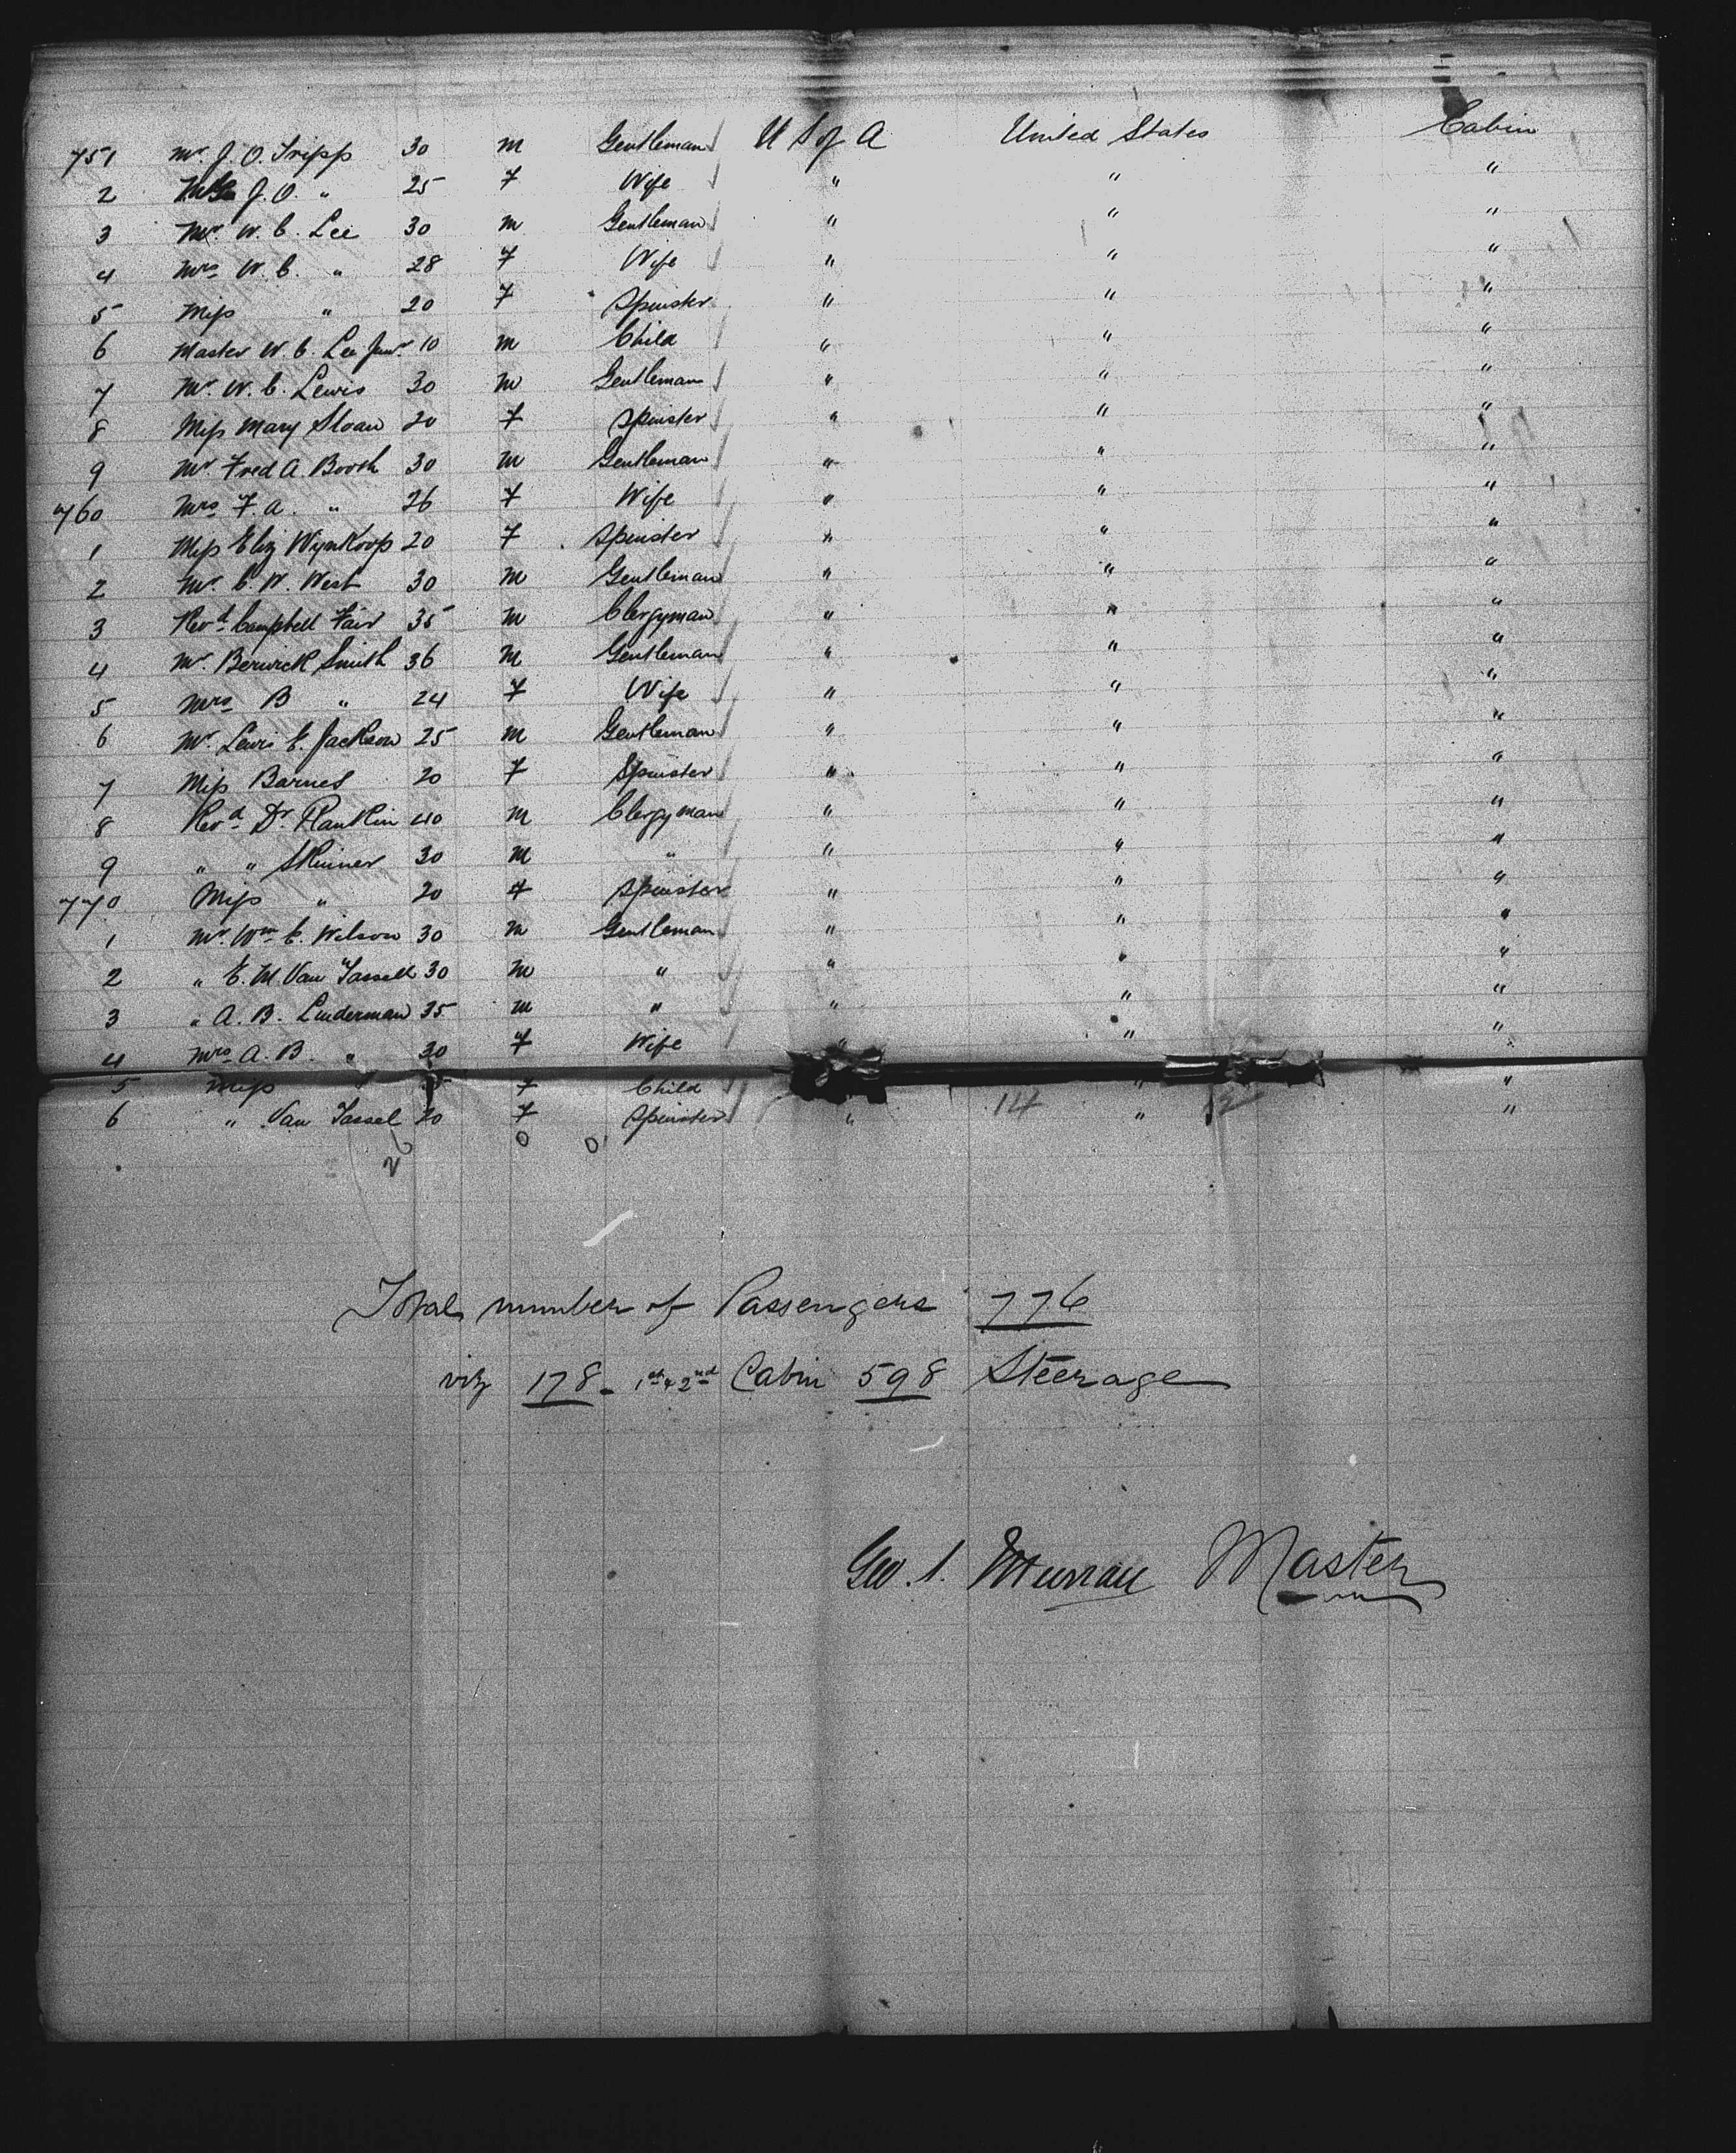 751 Mr. J. O. Tripp 30 m Gentleman U S of A United States Cabin
2 Mrs J. O. " 25 F Wife " " "
3 Mr. W. C. Lee 30 m Gentleman " " "
4 Mrs W. C. " 28 F Wife " " "
5 Miss " 20 F Spinster " " "
6 Master W. C. Lee Junr 10 m Child " " "
7 Mr. W. C. Lewis 30 m Gentleman " " "
8 Miss Mary Sloan 20 F Spinster " " "
9 Mr Fred A. Booth 30 m Gentleman " " "
760 Mrs F. A. " 26 F Wife " " "
1 Miss Eliz Wynkoop 20 F Spinster " " "
2 Mr. C. W. West 30 m Gentleman " " "
3 Revd Campbell Fair 35 m Clergyman " " "
4 Mr. Berwick Smith 36 m Gentleman " " "
5 Mrs B " 24 F Wife " " "
6 Mr. Lewis E. Jackson 25 m Gentleman " " "
7 Miss Barnes 20 F Spinster " " "
8 Revd Dr. Rankin 40 m Clergyman " " "
9 " " Skinner 30 m " " " "
770 Miss " 20 F Spinster " " "
1 Mr. Wm C. Wilson 30 m Gentleman " " "
2 " E. M. Van Tassell 30 m " " " "
3 " A. B. Linderman 35 m " " " "
4 Mrs A. B. " 30 F Wife " " "
5 Miss " F Child " "
6 " Van Tassel 20 F Spinster " 14 " 12 "
26 0 0
Total number of Passengers 776
viz 178 - 1st & 2nd Cabin 598 Steerage
Geo. S. Murray Master